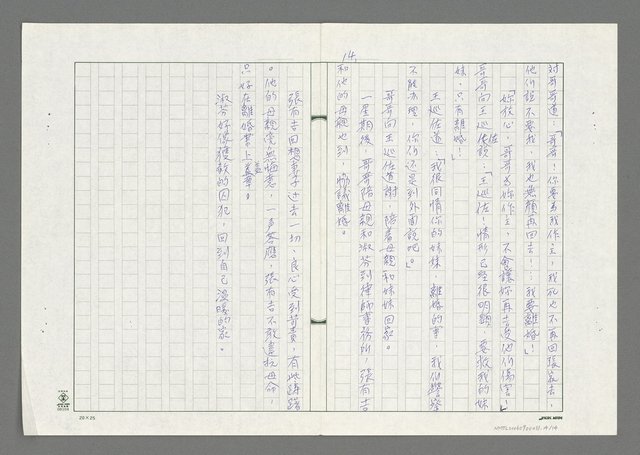 14.
對哥哥道:「哥哥!你要為我作主,我死也不再回張家去,
他們說不要我,我也無顏再回去!⋯我要離婚!」
「妳放心,哥哥為妳作主,不會讓妳再去受他们傷害!」
哥哥向王巡佐說:「王巡佐!情形已經很明顯,要救我的妹
妹,只有離婚!」
王巡佐道:「我很同情你的妹妹,離婚的事,我们警察
不能办理,你们还是到外面說吧。」
哥哥向王巡佐道謝,陪着母親和妹妹回家。
一星期後,哥哥陪母親和淑芬到律師事務所,張有吉
和他的母親也到,協議離婚。
張有吉回想妻子过去一切,良心受到苛責,有些躊躇
。他的母親毫無悔意,一声答應,張有吉不敢違抗母命,
只好在離婚書上蓋章。
淑芬好像獲赦的囚犯,回到自己溫暖的家。
20×25